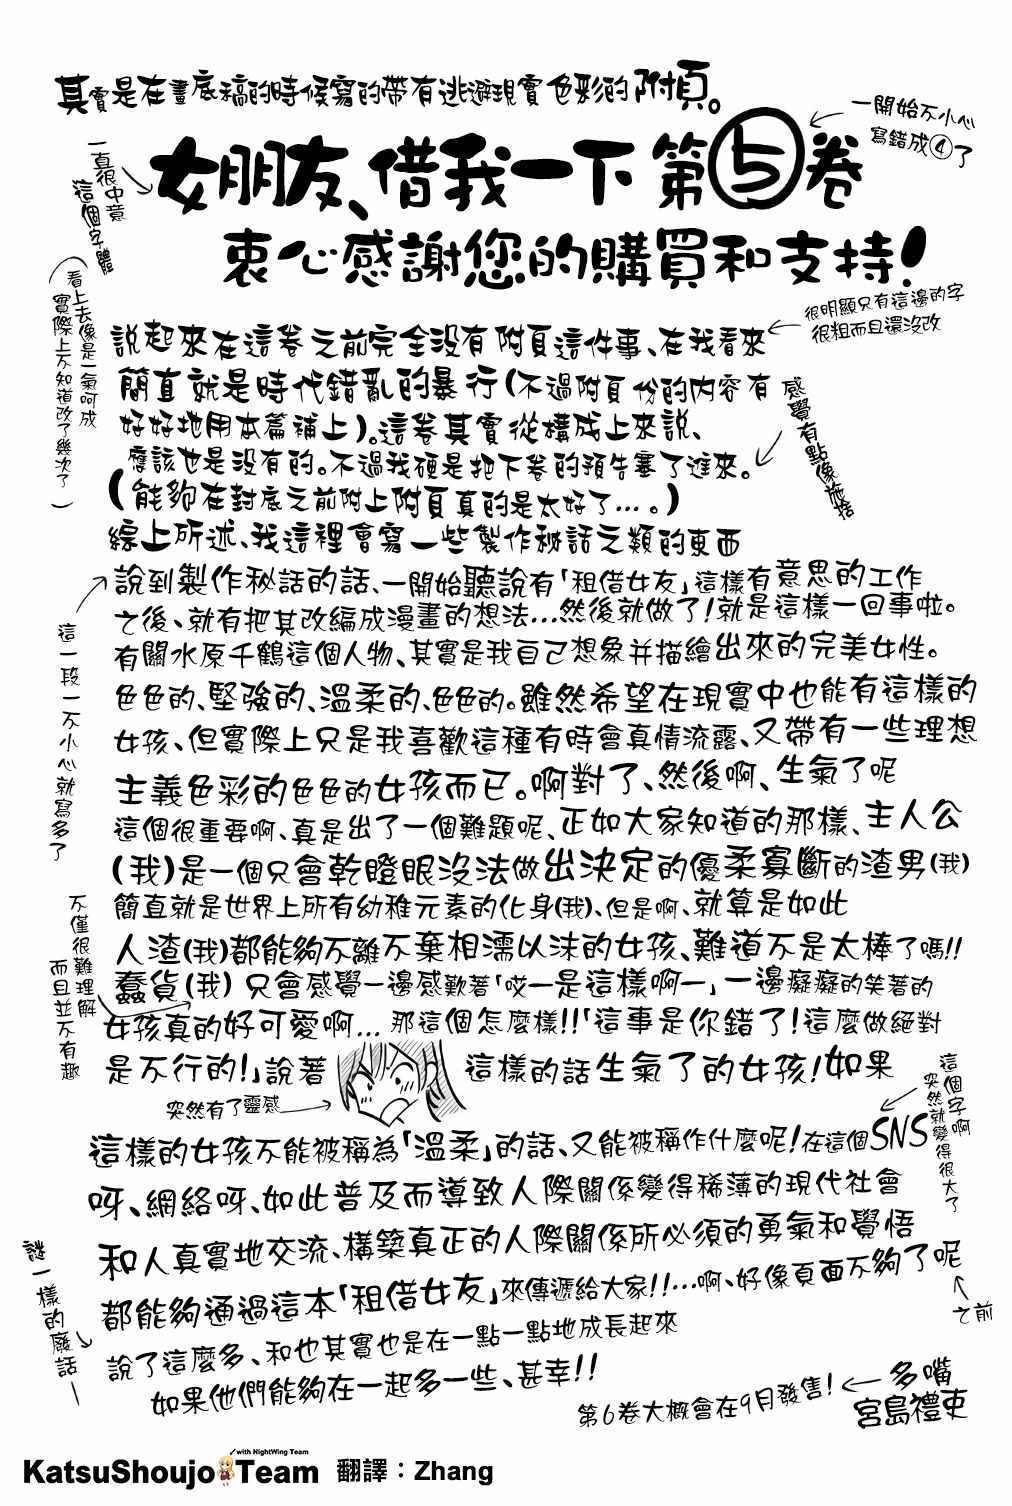 其實是在畫底稿的時候寫的帶有逃避現實色彩的附頁。
一開始不小心
寫錯成④了
一直很中意
這個字體
女朋友、借我一下第5卷
衷心感謝您的購買和支持!
(看上去像是一氣呵成
實際上不知道改了幾次了)
很明顯只有這邊的字
很粗而且還沒改
說起來在這卷之前完全沒有附頁這件事、在我看來
簡直就是時代錯亂的暴行(不過附頁份的內容有
好好地用本篇補上)。這卷其實從構成上來說、
應該也是沒有的。不過我硬是把下卷的預告塞了進來。
感覺有點像施捨
(能夠在封底之前附上附頁真的是太好了…。)
綜上所述、我這裡會寫一些製作秘話之類的東西
說到製作秘話的話、一開始聽說有「租借女友」這樣有意思的工作
之後、就有把其改編成漫畫的想法…然後就做了!就是這樣一回事啦。
有關水原千鶴這個人物、其實是我自己想象并描繪出來的完美女性。
這一段一不小心就寫多了
色色的、堅強的、溫柔的、色色的。雖然希望在現實中也能有這樣的
女孩、但實際上只是我喜歡這種有時會真情流露、又帶有一些理想
主義色彩的色色的女孩而已。啊對了、然後啊、生氣了呢
這個很重要啊、真是出了一個難題呢、正如大家知道的那樣、主人公
(我)是一個只會乾瞪眼沒法做出決定的優柔寡斷的渣男(我)
簡直就是世界上所有幼稚元素的化身(我)、但是啊、就算是如此
人渣(我)都能夠不離不棄相濡以沫的女孩、難道不是太棒了嗎!!
不僅很難理解
而且並不有趣
蠢貨(我)只會感覺一邊感歎著「哎一是這樣啊一」一邊癡癡的笑著的
女孩真的好可愛啊…那這個怎麼樣!!「這事是你錯了!這麼做絕對
是不行的!」說著 這樣的話生氣了的女孩!如果
突然有了靈感
這個字啊
突然就變得很大了
這樣的女孩不能被稱為「溫柔」的話、又能被稱作什麼呢!在這個SNS
呀、網絡呀、如此普及而導致人際關係變得稀薄的現代社會
和人真實地交流、構築真正的人際關係所必須的勇氣和覺悟
都能夠通過這本「租借女友」來傳遞給大家!!…啊、好像頁面不夠了呢
之前
謎一樣的廢話一
說了這麼多、和也其實也是在一點一點地成長起來
如果他們能夠在一起多一些、甚幸!!
第6卷大概會在9月發售!
多嘴
宮島禮吏
with NightWing Team
KatsuShoujo Team 翻譯：Zhang